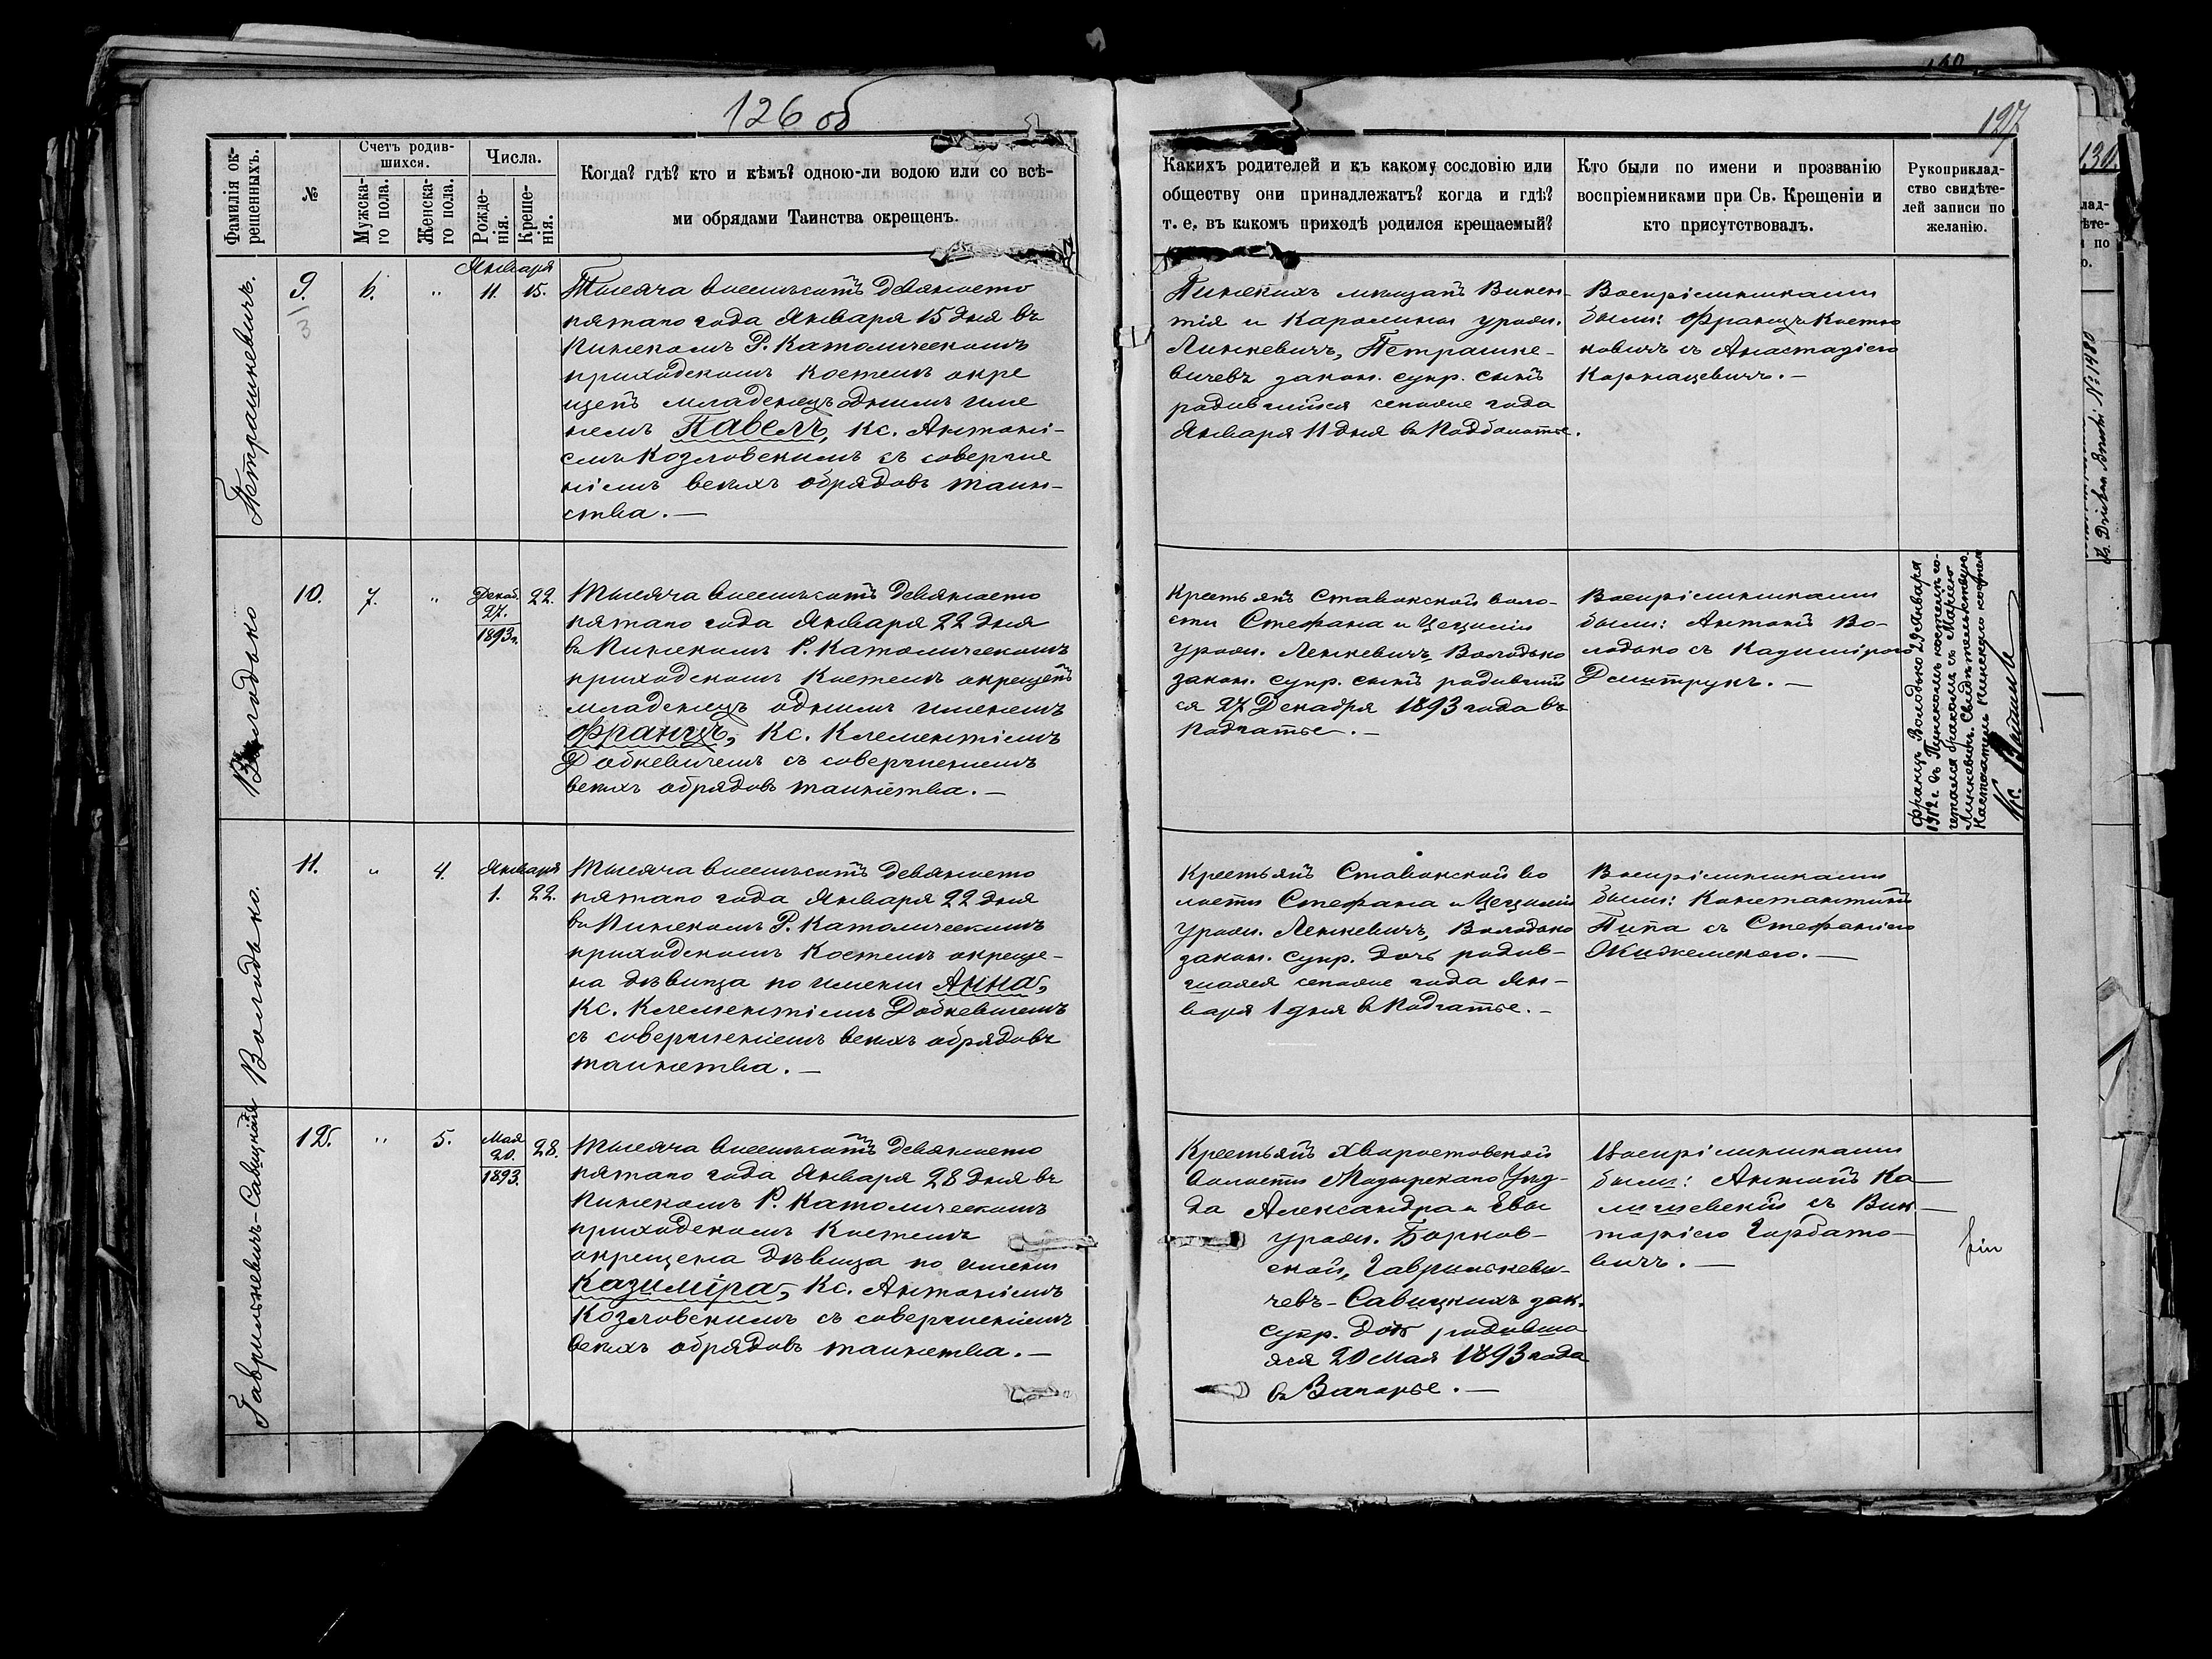 126 об
127
130.
Фамилія ок-
рещенныхъ.
№
Счетъ родив-
шихся.
Мужска-
го пола.
Женска-
го пола.
Числа.
Рожде-
нія.
Креще-
нія.
Когда? гдѣ? кто и кѣмъ? одною-ли водою или со всѣ-
ми обрядами Таинства окрещенъ.
Какихъ родителей и къ какому сословію или
обществу они принадлежатъ? когда и гдѣ?
т. е. въ какомъ приходѣ родился крещаемый?
Кто были по имени и прозванію
воспріемниками при Св. Крещеніи и
кто присутствовалъ.
Рукоприклад-
ство свидѣте-
лей записи по
желанію.
Петрашкевичъ.
9.
3
6.
"
Января
11. 15.
Тысяча восемьсотъ девяносто
пятаго года Января 15 дня въ
Пинскомъ Р. Католическомъ
приходскомъ костелѣ окре
щенъ младенецъ однимъ име
немъ Павелъ, Кс. Антоні-
емъ Козловскимъ съ соверше
ніемъ всѣхъ обрядовъ таин-
ства. —
Пинскихъ мѣщанъ Викен-
тія и Каролины урожд.
Линкевичъ, Петрашке-
вичевъ закон. супр. сынъ
родившійся сего же года
Января 11 дня въ Подболотье.
Воспріемниками
были: Францъ Костю
ковичъ съ Анастазіею
Корнацевичъ. —
Володько
10.
7.
"
Декаб.
27.
1893 г.
22.
Тысяча восемьсотъ девяносто
пятаго года Января 22 дня
въ Пинскомъ Р. Католическомъ
приходскомъ костелѣ окрещенъ
младенецъ однимъ именемъ
Францъ, Кс. Клементіемъ
Добкевичемъ съ совершеніемъ
всѣхъ обрядовъ таинства. —
Крестьянъ Ставокской воло-
сти Стефана и Цециліи
урожд. Ленкевичъ, Володько
закон. супр. сынъ родивший
ся 27 Декабря 1893 года въ
Подгатье. —
Воспріемниками
были: Антонъ Во-
лодько съ Казимірою
Дмитрукъ. —
Францъ Володько 29 Января
1912 г. въ Пинскомъ костелѣ со-
четался бракомъ съ Маріею
Линкевичъ. Свидѣтельствую.
Настоятель Пинскаго костела
Кс.
Володько.
11.
"
4.
Января
1. 22.
Тысяча восемьсотъ девяносто
пятаго года Января 22 дня
въ Пинскомъ Р. Католическомъ
приходскомъ костелѣ окреще-
на дѣвица по имени Анна,
Кс. Клементіемъ Добкевичемъ
съ совершеніемъ всѣхъ обрядовъ
таинства. —
Крестьянъ Ставокской во
лости Стефана и Цециліи
урожд. Ленкевичъ, Володько
закон. супр. дочь родив-
шаяся сего же года Ян-
варя 1 дня въ Подгатье. —
Воспріемниками
были: Константинъ
Пипа съ Стефаніею
Гаврильчевичъ-Савицкій
12.
"
5.
Мая
20.
1893.
28.
Тысяча восемьсотъ девяносто
пятаго года Января 28 дня въ
Пинскомъ Р. Католическомъ
приходскомъ костелѣ
окрещена дѣвица по имени
Казиміра, Кс. Антоніемъ
Козловскимъ съ совершеніемъ
всѣхъ обрядовъ таинства. —
Крестьянъ Хворостовской
волости Мозырскаго Уѣз-
да Александра и Евы
урожд. Борков-
ской, Гаврилькеви-
чевъ-Савицкихъ зак.
супр. дочь родивша
яся 20 Мая 1893 года
въ Загорье. —
Воспріемниками
были: Антонъ Ка-
личевскій съ Вик-
торіею Горбато-
вичъ. —
№ 1480